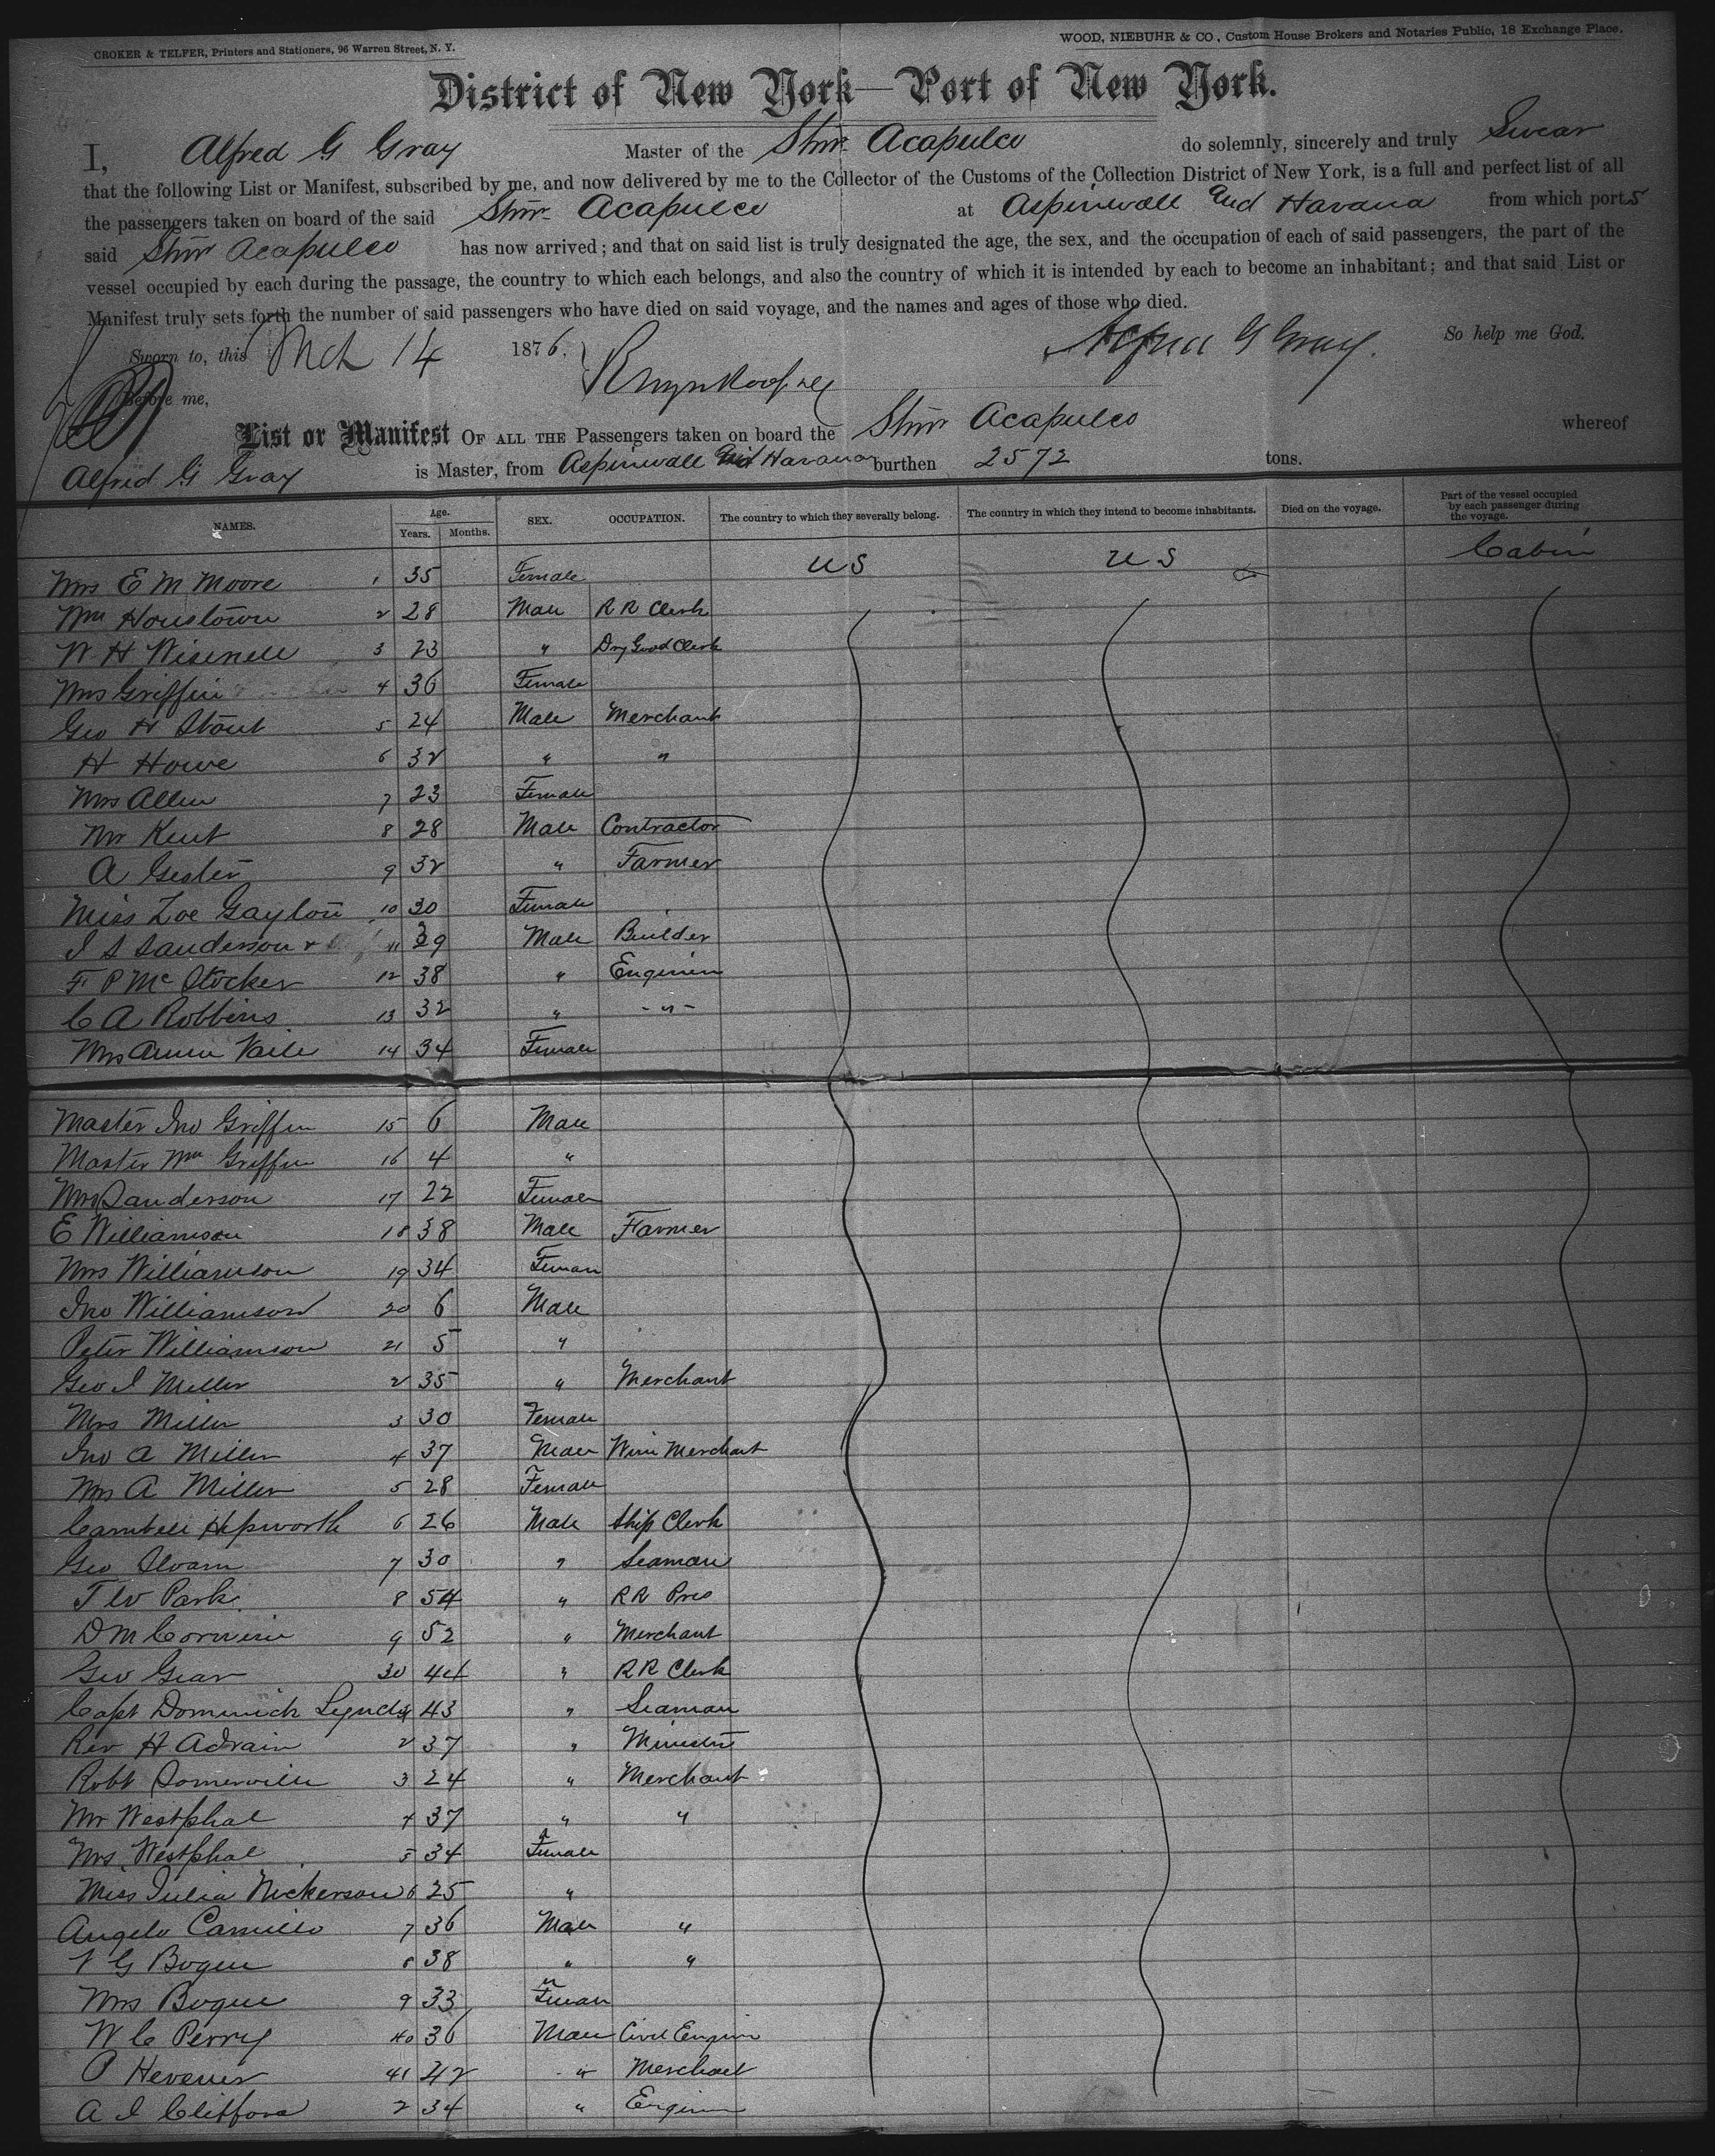 CROKER & TELFER, Printers and Stationers, 96 Warren Street, N. Y.
WOOD, NIEBUHR & CO., Custom House Brokers and Notaries Public, 18 Exchange Place.
District of New York—Port of New York.
I, Alfred G Gray Master of the Stmr Acapulco do solemnly, sincerely and truly Swear
that the following List or Manifest, subscribed by me, and now delivered by me to the Collector of the Customs of the Collection District of New York, is a full and perfect list of all
the passengers taken on board of the said Stmr Acapulco at Aspinwall and Havana from which ports
said Stmr Acapulco has now arrived; and that on said list is truly designated the age, the sex, and the occupation of each of said passengers, the part of the
vessel occupied by each during the passage, the country to which each belongs, and also the country of which it is intended by each to become an inhabitant; and that said List or
Manifest truly sets forth the number of said passengers who have died on said voyage, and the names and ages of those who died.
So help me God.
Sworn to, this Mch 14 1876. Alfred G Gray.
Before me,
List or Manifest OF ALL THE Passengers taken on board the Stmr Acapulco whereof
Alfred G Gray is Master, from Aspinwall and Havana burthen 2572 tons.
NAMES. Age. Years. Months. SEX. OCCUPATION. The country to which they severally belong. The country in which they intend to become inhabitants. Died on the voyage. Part of the vessel occupied by each passenger during the voyage.
Mrs E M Moore 1 35 Female US US Cabin
Wm Houstown 2 28 Male R R Clerk
W H Wisenell 3 23 " Dry Good Clerk
Mrs Griffin 4 36 Female
Geo H Stout 5 24 Male Merchant
H Howe 6 32 " "
Mrs Allen 7 23 Female
Mr Kent 8 28 Male Contractor
A Gester 9 32 " Farmer
Miss Zoe Gaylon 10 30 Female
J S Sanderson + 11 39 Male Builder
F P McStocker 12 38 " Engineer
C A Robbins 13 32 " - " -
Mrs Annie Vaile 14 34 Female
Master Jno Griffin 15 6 Male
Master Wm Griffin 16 4 "
Mrs Sanderson 17 22 Female
E Williamson 18 38 Male Farmer
Mrs Williamson 19 34 Female
Jno Williamson 20 6 Male
Peter Williamson 21 5 "
Geo J Miller 2 35 " Merchant
Mrs Miller 3 30 Female
Jno A Miller 4 37 Male Wine Merchant
Mrs A Miller 5 28 Female
Cambell Hepworth 6 26 Male Ship Clerk
Geo 7 30 " Seaman
T W Park 8 54 " R R Pres
D M Corwin 9 52 " Merchant
Geo Gear 30 44 " R R Clerk
Capt Dominick 31 43 " Seaman
Rev H Adrain 2 37 " Minister
Robt Somerville 3 24 " Merchant
Mr Westphal 4 37 " "
Mrs Westphal 5 34 Female
Miss Julia Nickerson 6 25 "
Angelo Camillo 7 36 Male "
V G Bogue 8 38 " "
Mrs Bogue 9 33 Female
W C Perry 40 36 Male Civil Engineer
P Hevener 41 42 " Merchant
A J Clifford 2 34 " Engineer